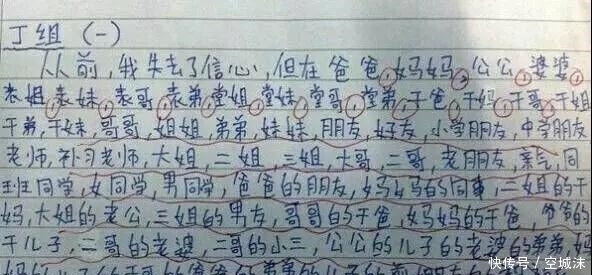 丁组 (一)
从前,我失去了信心,但在爸爸,妈妈,公公,婆婆
表姐,表妹,表哥,表弟,堂姐,堂妹,堂哥,堂弟,干爸,干妈,干哥,干姐
干弟,干妹,哥哥,姐姐,弟弟,妹妹,朋友,好友,小学朋友,中学朋友
老师,补习老师,大姐,二姐,三姐,大哥,二哥,老朋友,亲气,同
班同学,女同学,男同学,爸爸的朋友,妈妈的同事,二姐的干
妈,大姐的老公,三姐的男友,哥哥的干爸,妈妈的干爸,爷爷的
干儿子,二哥的老婆,二哥的小三,公公的儿子的老婆的弟弟,妈
快传号/空城沫